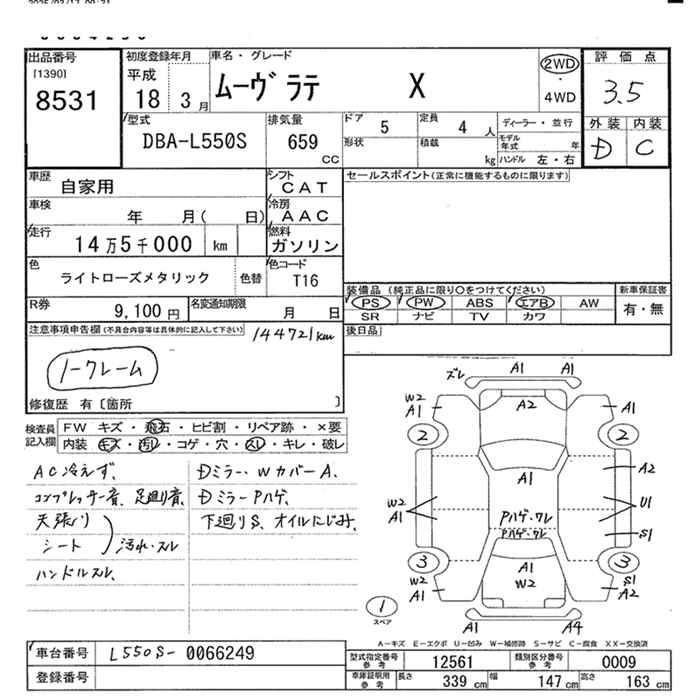 出品番号
[1390]
8531
初度登録年月
平成
18 3月
車名・グレード
ムーヴ ラテ X
2WD
・
4WD
評価点
3.5
外装 内装
D C
型式
DBA-L550S
排気量
659
CC
ドア 5
定員 4 人
ディーラー・並行
形状
積載 kg
モデル年式 年
ハンドル 左・右
車歴
自家用
シフト
CAT
車検
年 月( 日)
冷房
AAC
走行
14万5千000 km
燃料
ガソリン
色
ライトローズメタリック
色替
色コード
T16
R券
9,100円
名変通知期限
月 日
セールスポイント(正常に機能するものに限ります)
装備品 (純正品に限り○をつけてください)
PS PW ABS エアB AW
SR ナビ TV カワ
新車保証書
有・無
後日品
注意事項申告欄(不具合内容等は具体的に記入して下さい)
144721km
ノークレーム
修復歴 有〔箇所 〕
検査員記入欄
FW キズ・飛石・ヒビ割・リペア跡・×要
内装 キズ・汚れ・コゲ・穴・スレ・キレ・破レ
AC冷えず、
コンプレッサー音、足廻り音、
天張り
シート
汚れ・スレ
ハンドルスレ、
Dミラー、WカバーA、
DミラーPハゲ、
下廻りS、オイルにじみ、
ズレ A1 A1
W2
A1
A2
A1
2
2
A1
A2
W2
A1
U1
S1
Pハゲ・ワレ
Pハゲ・ワレ
3
3
A1
W2
W2
A1
S1
A2
1
スペア
A1 A4
A-キズ E-エクボ U-凹み W-補修跡 S-サビ C-腐食 XX-交換済
車台番号
L550S-0066249
登録番号
型式指定番号
参考
12561
類別区分番号
参考
0009
車庫証明用
参考
長さ 339 cm
幅 147 cm
高さ 163 cm